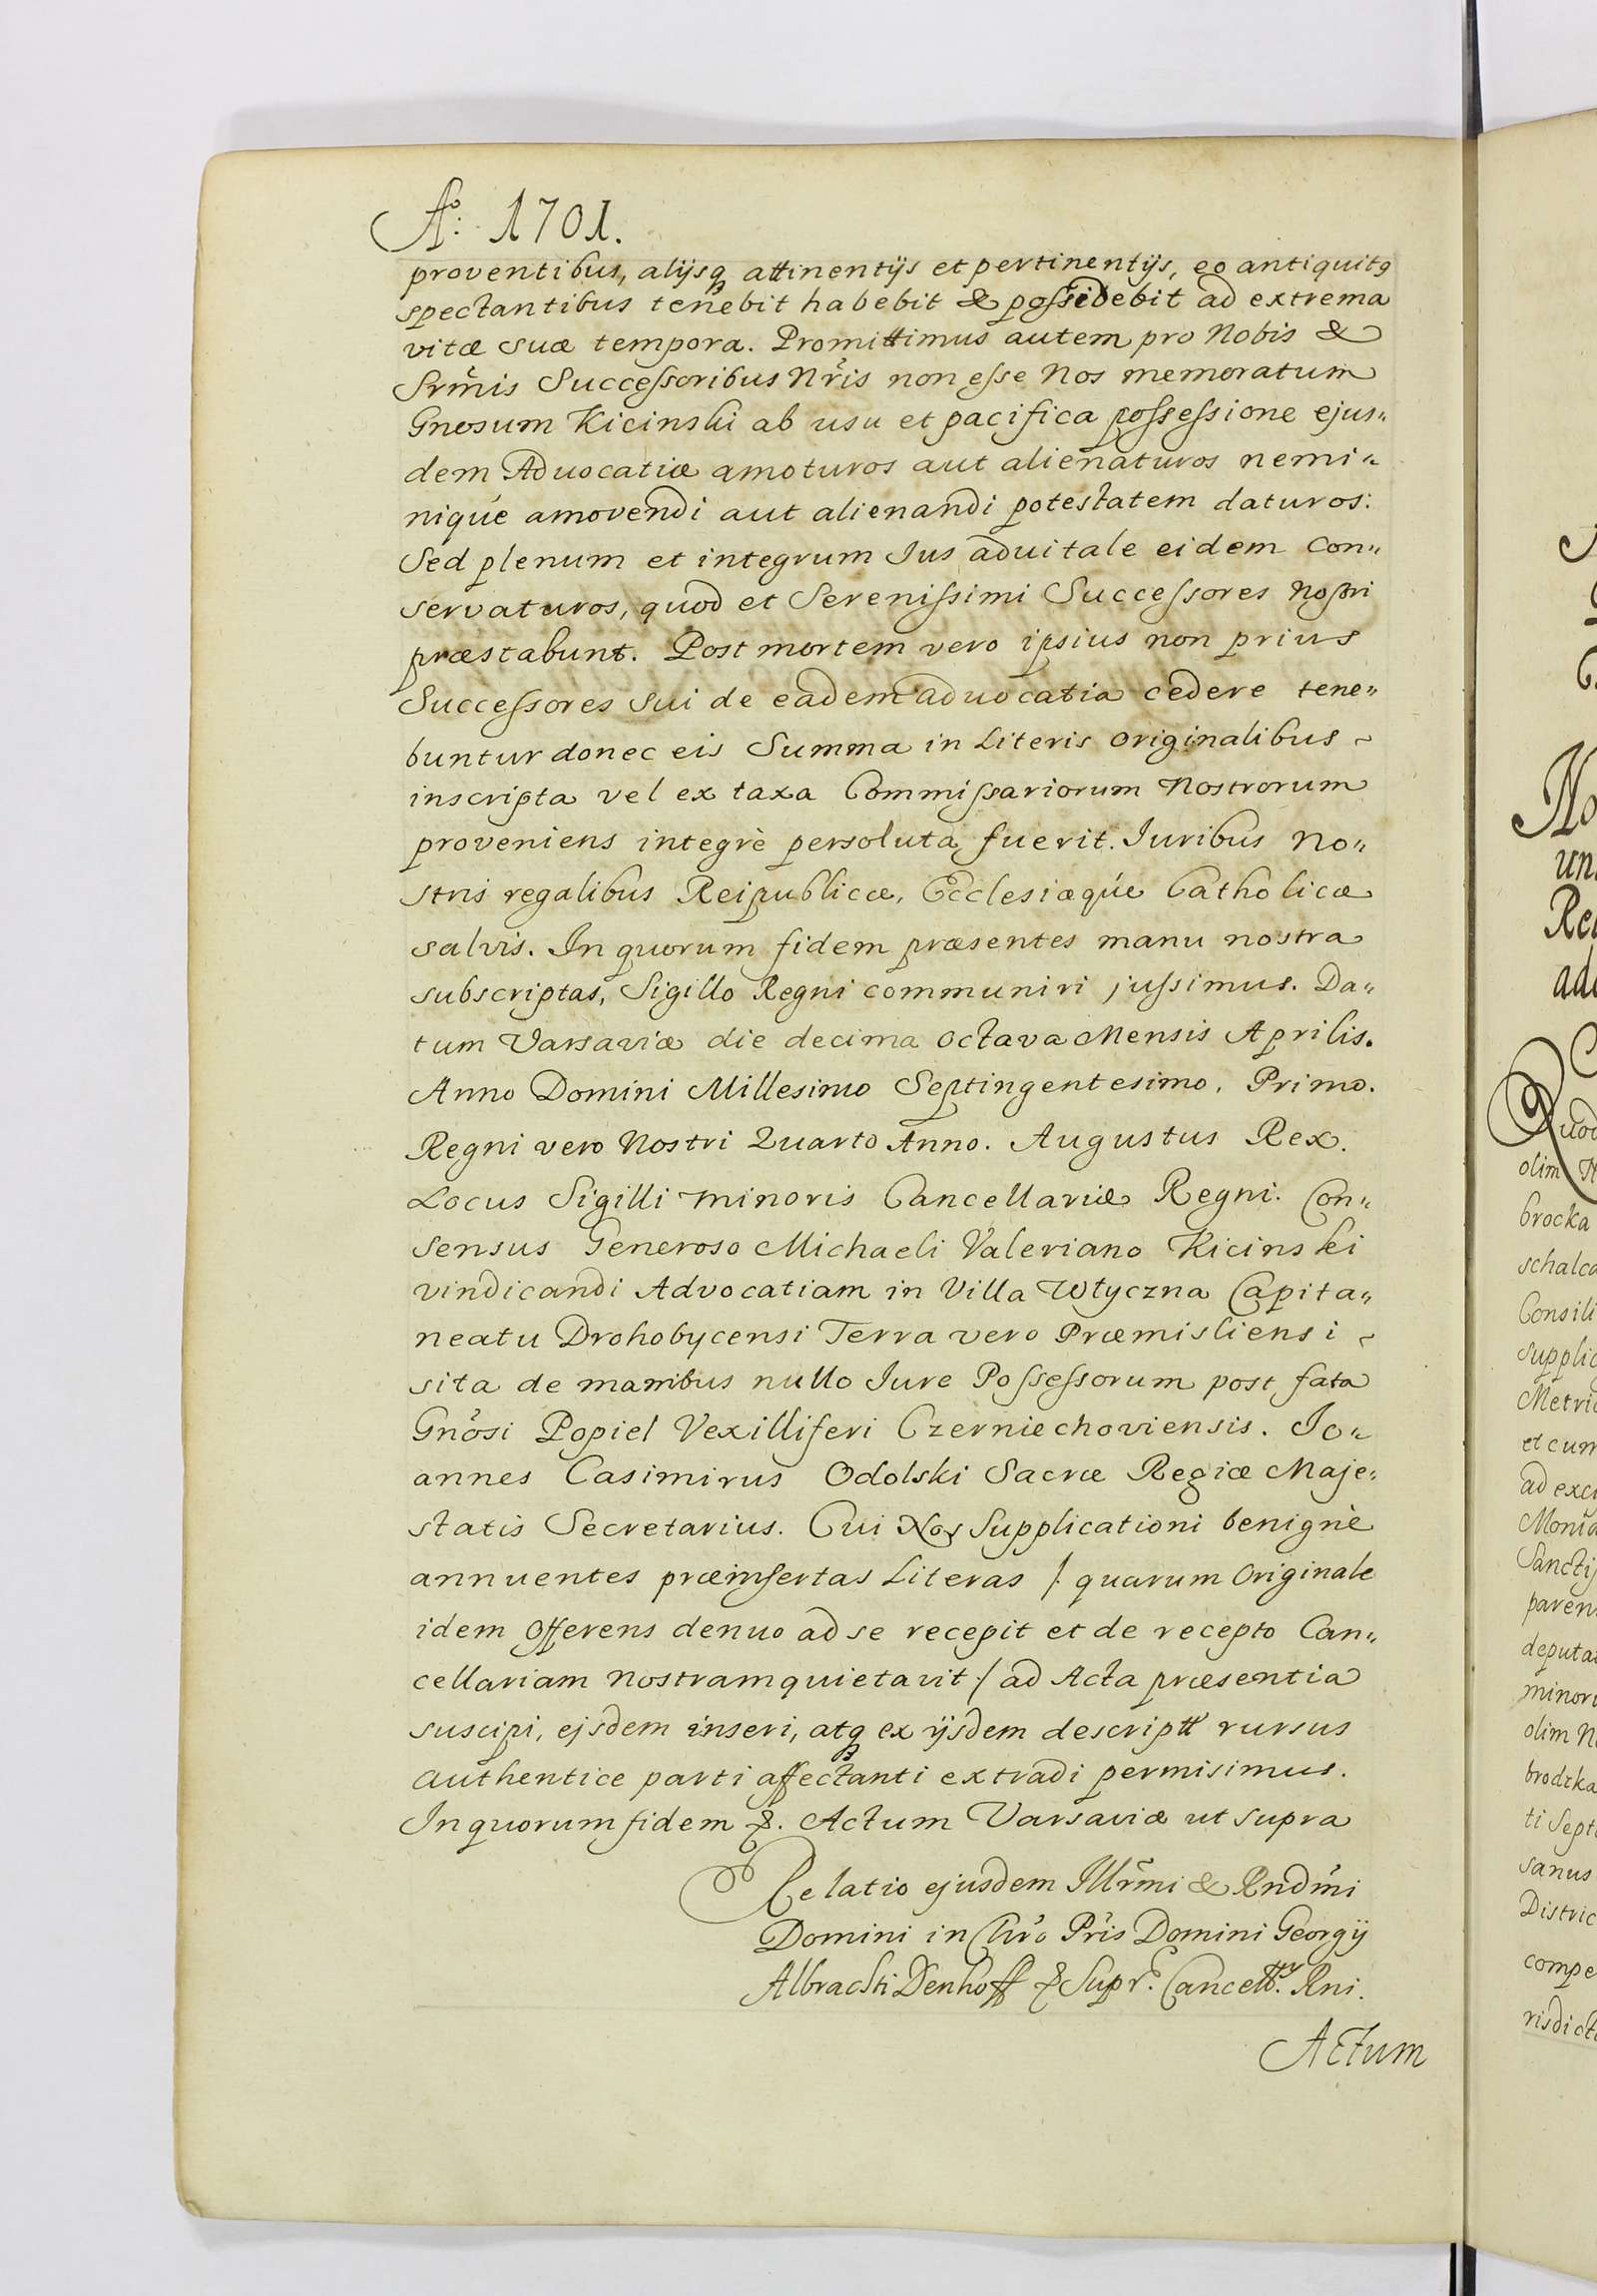 Aº: 1701.
proventibus, alijsq attinentijs et pertinentijs, eo antiquitg
spectantibus tenebit habebit & possidebit ad extrema
vitæ suæ tempora. Promittimus autem pro Nobis &
Srmis Successoribus Nris non esse Nos memoratum
Gnosum Kicinski ab usu et pacifica possessione ejus„
dem Advocatiæ amoturos aut alienaturos nemi„
nique amovendi aut alienandi potestatem daturos:
Sed plenum et integrum Ius advitale eidem con„
servaturos, quod et Serenissimi Successores Nostri
præstabunt. Post mortem vero ipsius non prius
Successores sui de eadem advocatia cedere tene„
buntur donec eis Summa in Literis originalibus ~
inscripta vel ex taxa Commissariorum Nostrorum
proveniens integrè persoluta fuerit. Iuribus No„
stris regalibus Reipublicæ, Ecclesiæque Catholicæ
salvis. In quorum fidem præsentes manu nostra
subscriptas, Sigillo Regni communiri jussimus. Da„
tum Varsaviæ die decima octava Mensis Aprilis.
Anno Domini Millesimo Septingentesimo, Primo.
Regni vero Nostri Quarto Anno. Augustus Rex.
Locus Sigilli minoris Cancellariæ Regni. Con„
sensus Generoso Michaeli Valeriano Kicinski
vindicandi Advocatiam in Villa Wtyczna Capita„
neatu Drohobycensi Terra vero Præmisliensi ~
sita de manibus nullo Iure Possessorum post fata
Gnosi Popiel Vexilliferi Czerniechoviensis. Io„
annes Casimirus Odolski Sacræ Regiæ Maje„
statis Secretarius. Cui Nos Supplicationi benignè
annuentes præinsertas Literas /: quarum Originale
idem Offerens denuo ad se recepit et de recepto Can„
cellariam nostram quietavit :/ ad Acta præsentia
suscipi, ejsdem inseri, atq ex ijsdem descriptt rursus
authentice parti affectanti extradi permisimus.
In quorum fidem &. Actum Varsaviæ ut supra
Relatio ejusdem Illrmi & Rndmi
Domini in Chro Pris Domini Georgij
Albrachti Denhoff & Supr. Cancell. Rni.
Actum
No
un
Re
ad
Quod
olim N
brocka
schalca
Consili
supplic
Metric
et cum
ad exci
Monia
Sanctis
parens
deputa
minori
olim N
brodzka
ti Septe
sanus
Distric
compe
risdicti